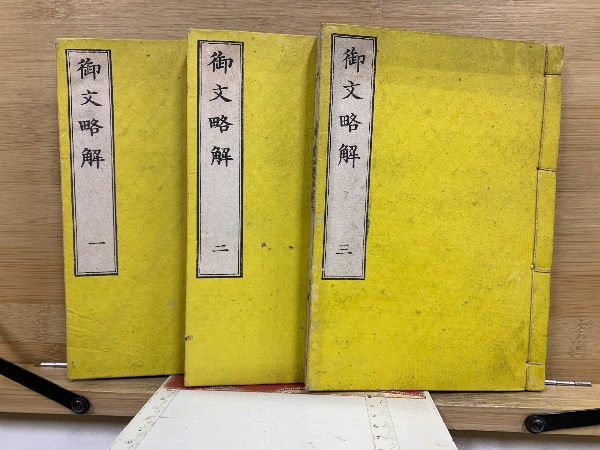 御文略解 一
御文略解 二
御文略解 三